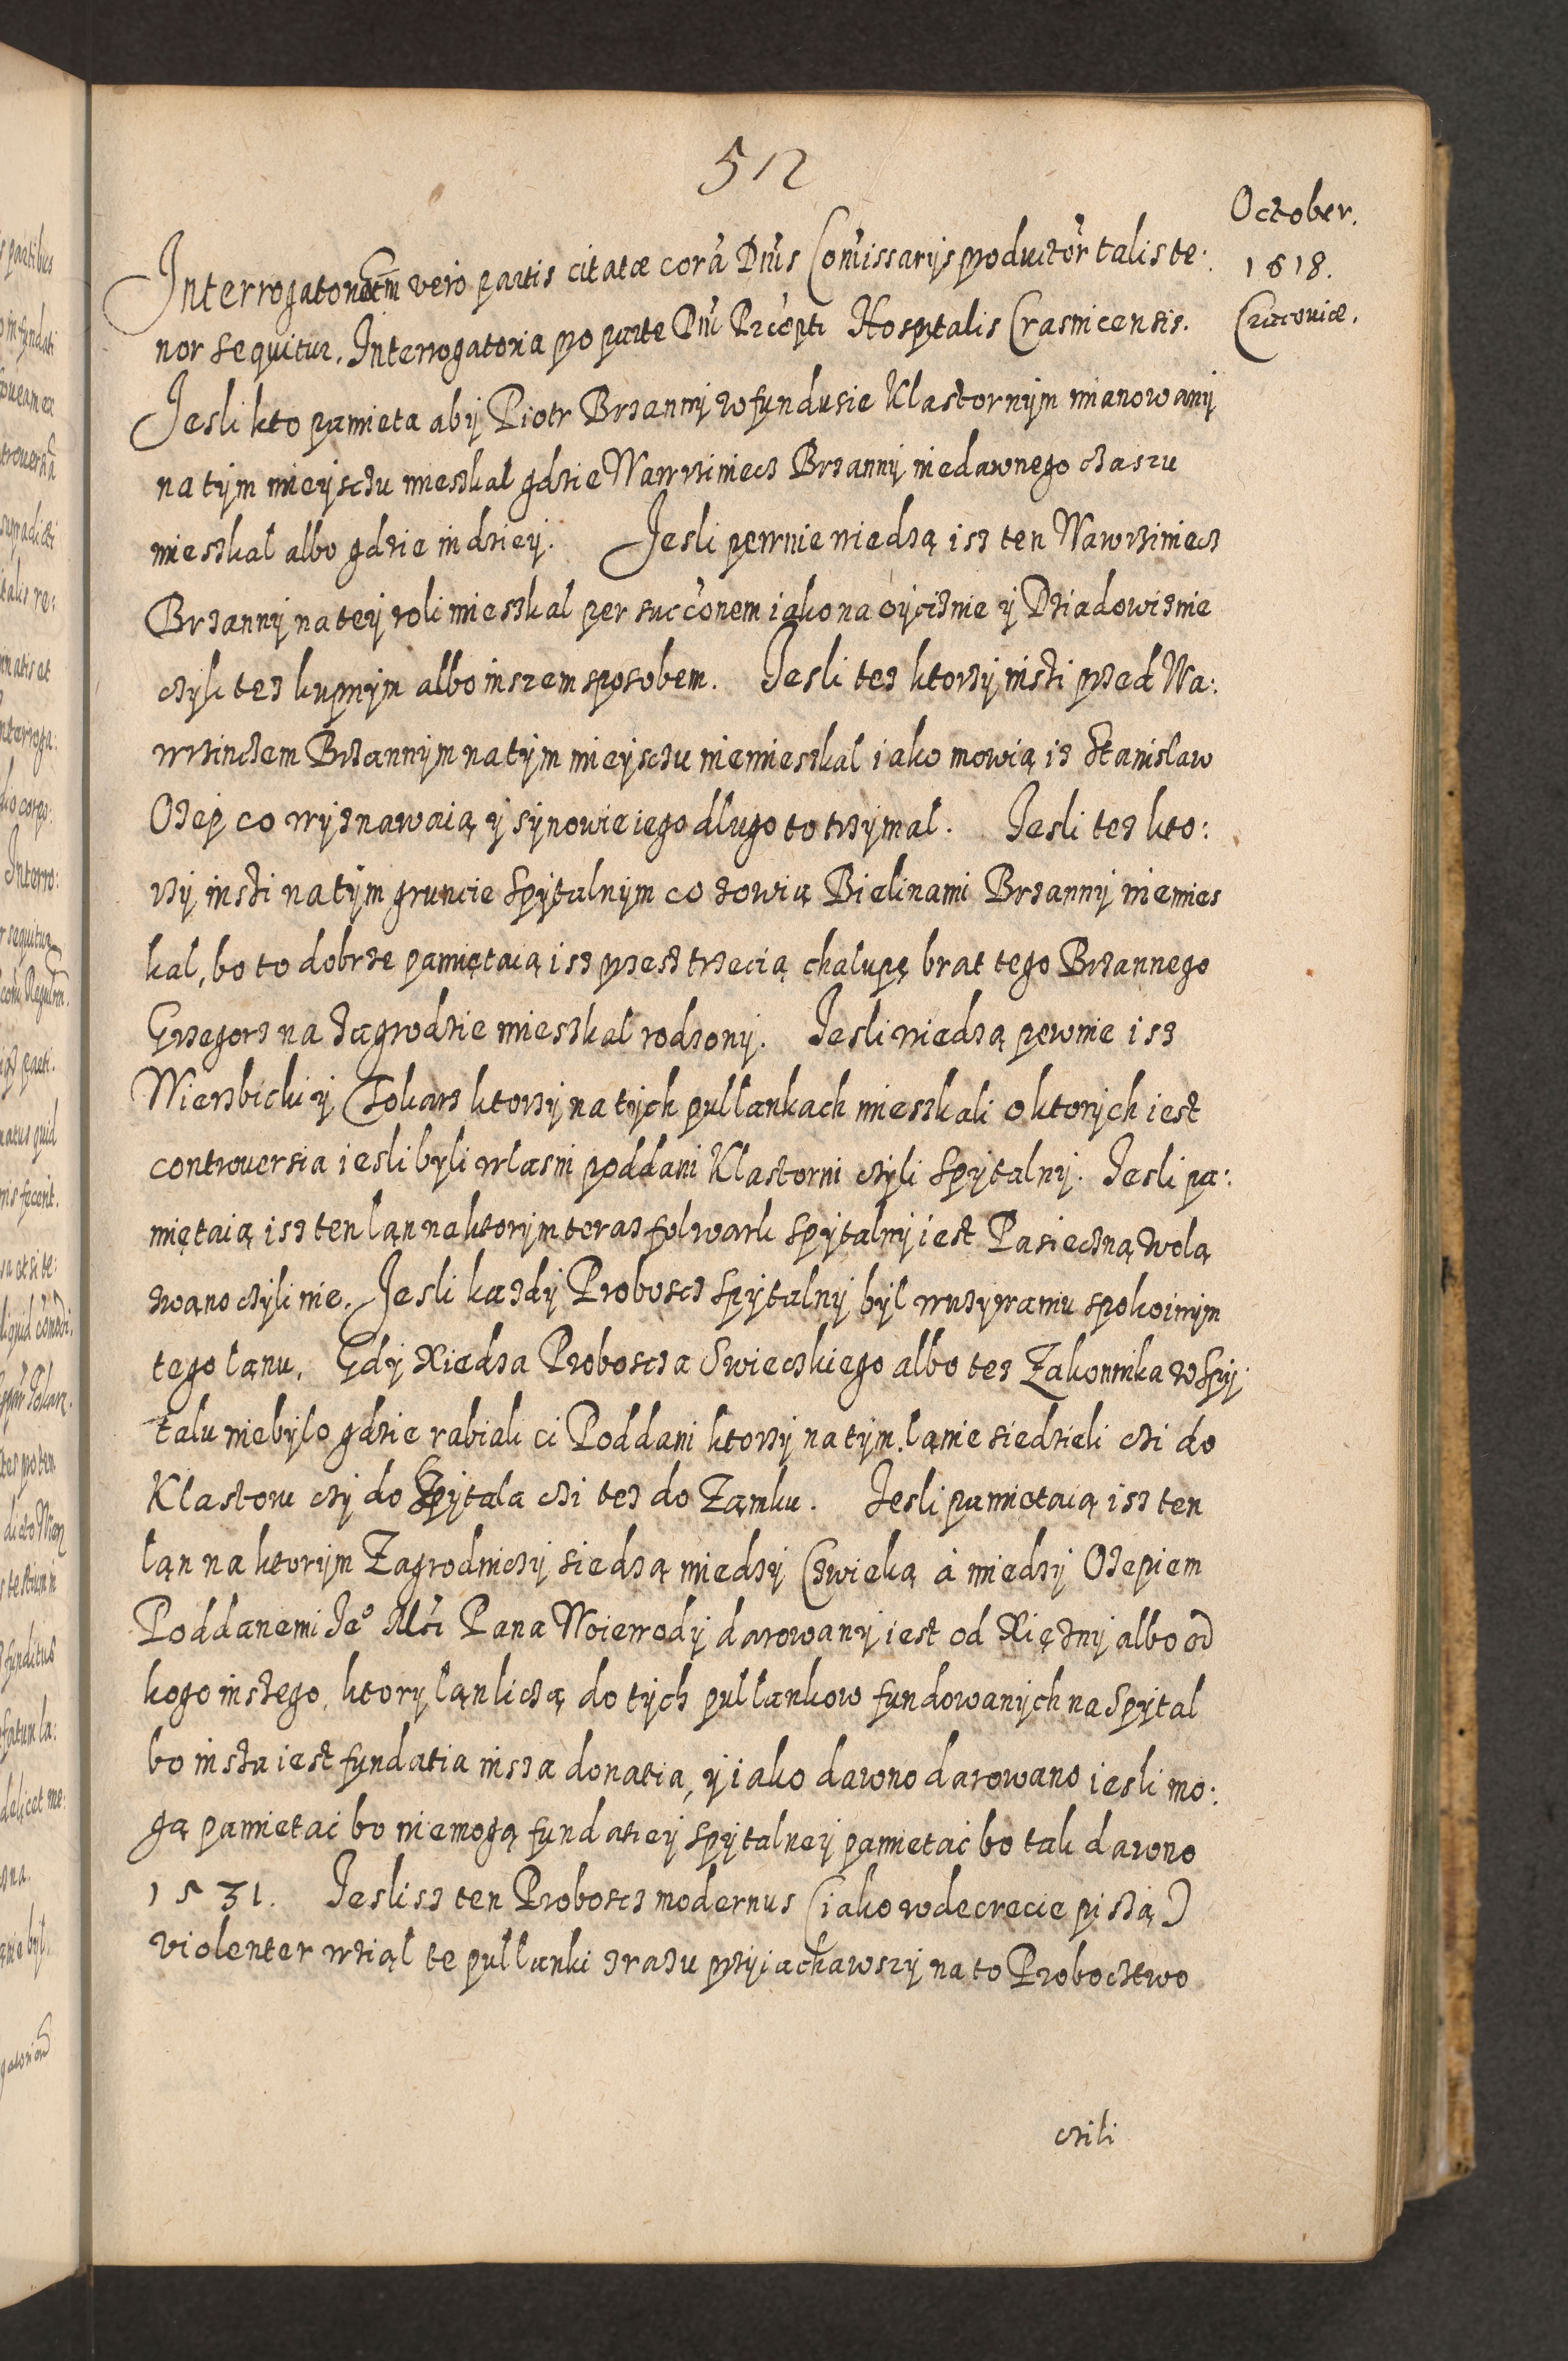 512
October.
1618.
Cracoviæ.
Interrogatoriorum vero partis citatæ corā Dnīs Com̄issarijs productor̄ talis te:
nor sequitur. Interrogatoria pro parte Dnī Prc̄epti Hosptalis Crasnicensis.
Jesli kto pamieta abÿ Piotr Brzannÿ w fundusie Klastornÿm mianowanÿ
na tÿm mieÿsczu mieszkal gdzie Wawrziniecz Brzannÿ niedawnego czaszu
mieszkal albo gdzie indzieÿ. Jesli pewnie wiedzą isz ten Wawrziniecz
Brzannÿ na teÿ roli mieszkal per succ̄onem iako na oÿcziznie ÿ Dziadowiznie
czÿli tez kupnÿm albo inszem sposobem. Jesli tez ktorzÿ inszi przed Wa:
wrzinczem Brzannÿm na tÿm mieÿsczu niemieszkal iako mowią iz Stanislaw
Ozep co wÿznawaią ÿ sÿnowie iego dlugo to trzÿmal. Jesli tez kto:
rzÿ inszi na tÿm gruncie Spÿtalnÿm co zowią Bielinami Brzannÿ niemies
kal, bo to dobrze pamiętaią isz przesz trzecią chalupę brat tego Brzannego
Grzegorz na Zagrodzie mieszkal rodzonÿ. Jesli wiedzą pewnie isz
Wierzbicki ÿ Tokarz ktorzÿ na tÿch pullankach mieszkali o ktorÿch iest
controuersia iesli byli wlasni poddani Klastorni czÿli Spÿtalnÿ. Jesli pa:
miętaią isz ten lan na ktorÿm teraz folwark Spÿtalnÿ iest Pasieczną wolą
zwano czÿli nie. Jesli kazdÿ Proboscz Spÿtalnÿ bÿl w uzÿwaniu spokoinÿm
tego lanu. Gdÿ Xiedza Proboscza Swieczkiego albo tez Zakonnika w Spÿ:
talu niebÿlo gdzie rabiali ci Poddani ktorzÿ na tÿm lanie siedzieli czi do
Klastoru czÿ do Szpÿtala czi tez do Zamku. Jesli pamietaią isz ten
lan na ktorÿm Zagrodniczÿ siedzą miedzÿ Czwieką á miedzÿ Ozepiem
Poddanemi Jeº Mści Pana Woiewodÿ darowanÿ iest od Xiężnÿ albo od
kogo inszego, ktorÿ lan liczą do tÿch pullankow fundowanÿch na Spÿtal
bo insza iest fundatia insza donatia, ÿ iako dawno darowano iesli mo:
gą pamietać bo niemogą fundatieÿ Spÿtalneÿ pamietać bo tak dawno
1531. Jesli sz ten Proboscz modernus (iako w decrecie piszą)
violenter wziąl te pullanki zrazu przÿiachawszÿ na to Proboсztwo
czili